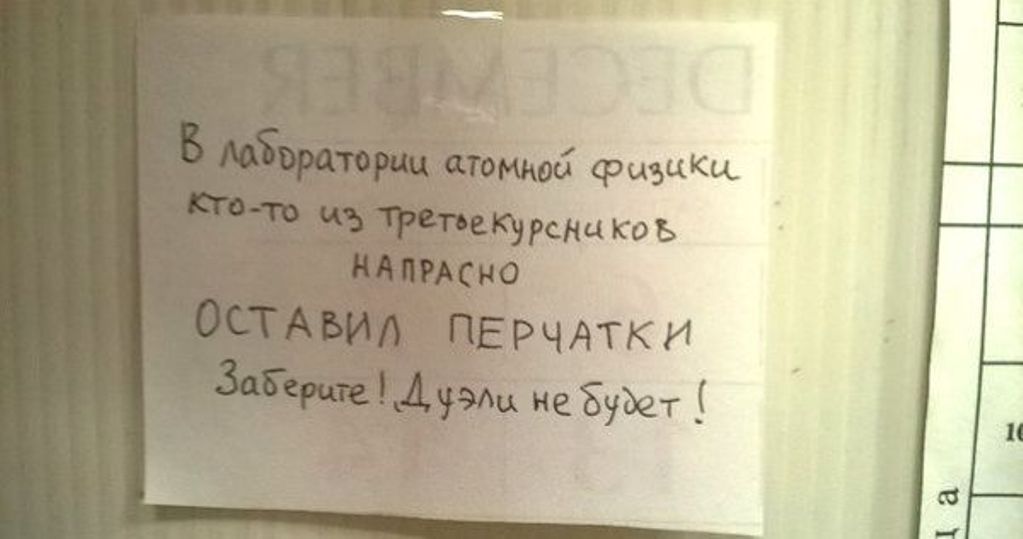 DECEMBER
В лаборатории атомной физики
кто-то из третьекурсников
НАПРАСНО
ОСТАВИЛ ПЕРЧАТКИ
Заберите! Дуэли не будет!
13
10
ца